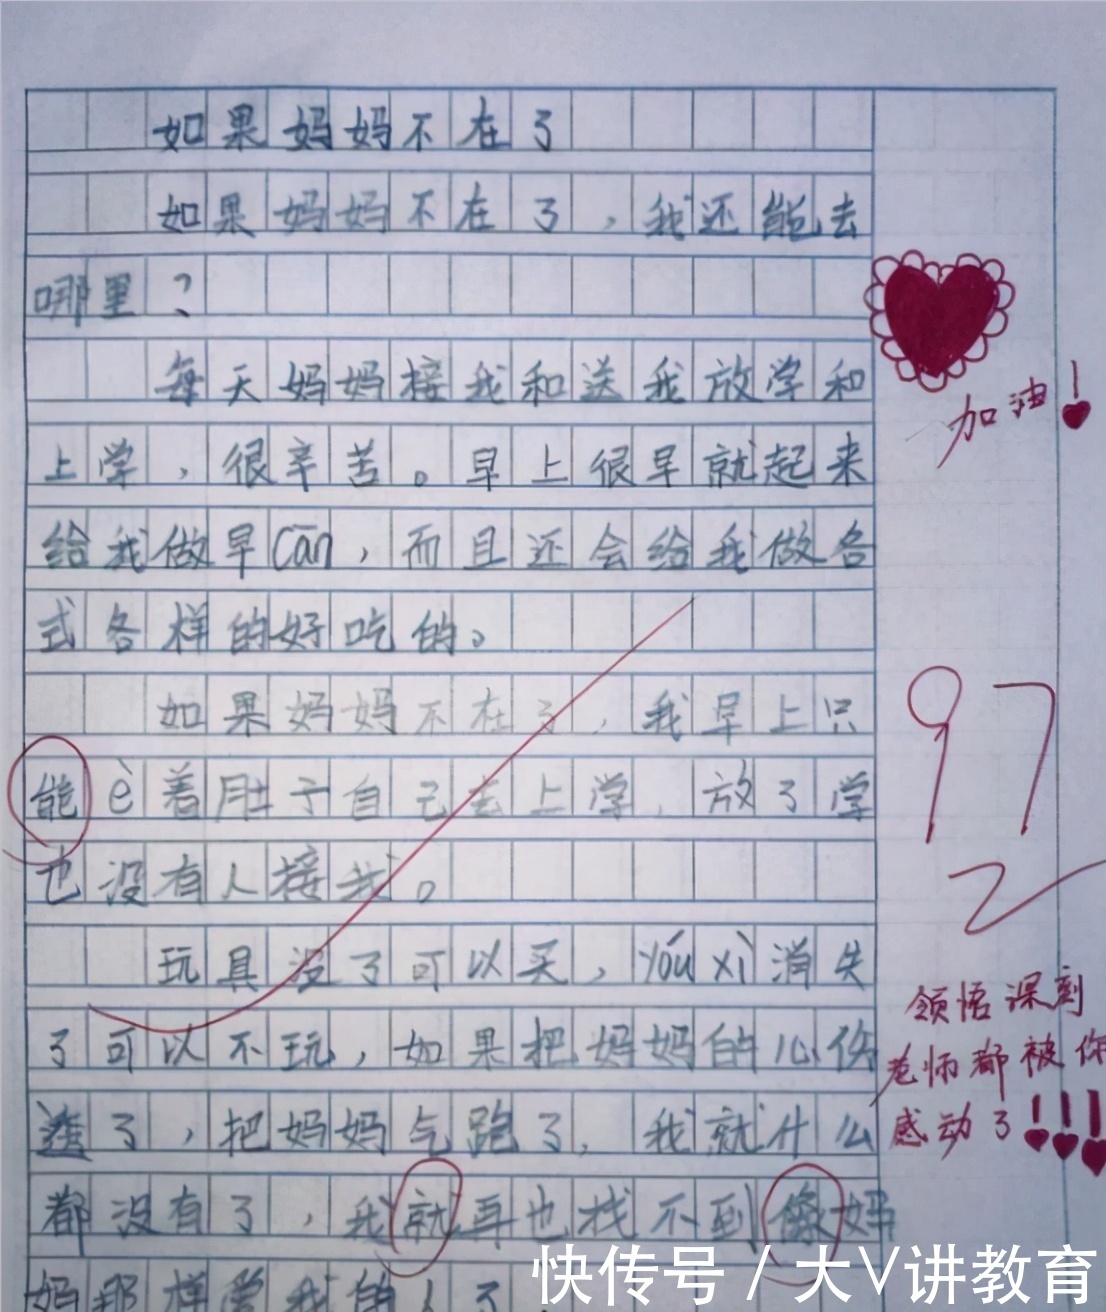 如果妈妈不在了
如果妈妈不在了，我还能去
哪里？
每天妈妈接我和送我放学和
上学，很辛苦。早上很早就起来
给我做早cān，而且还会给我做各
式各样的好吃的。
如果妈妈不在了，我早上只
能è着肚子自己去上学，放了学
也没有人接我。
玩具没了可以买，yóu xì消失
了可以不玩，如果把妈妈的心伤
透了，把妈妈气跑了，我就什么
都没有了，我就再也找不到像妈
妈那样爱我的人了.
加油！
97
领悟深刻
老师都被你
感动了！！！
快传号 / 大V讲教育